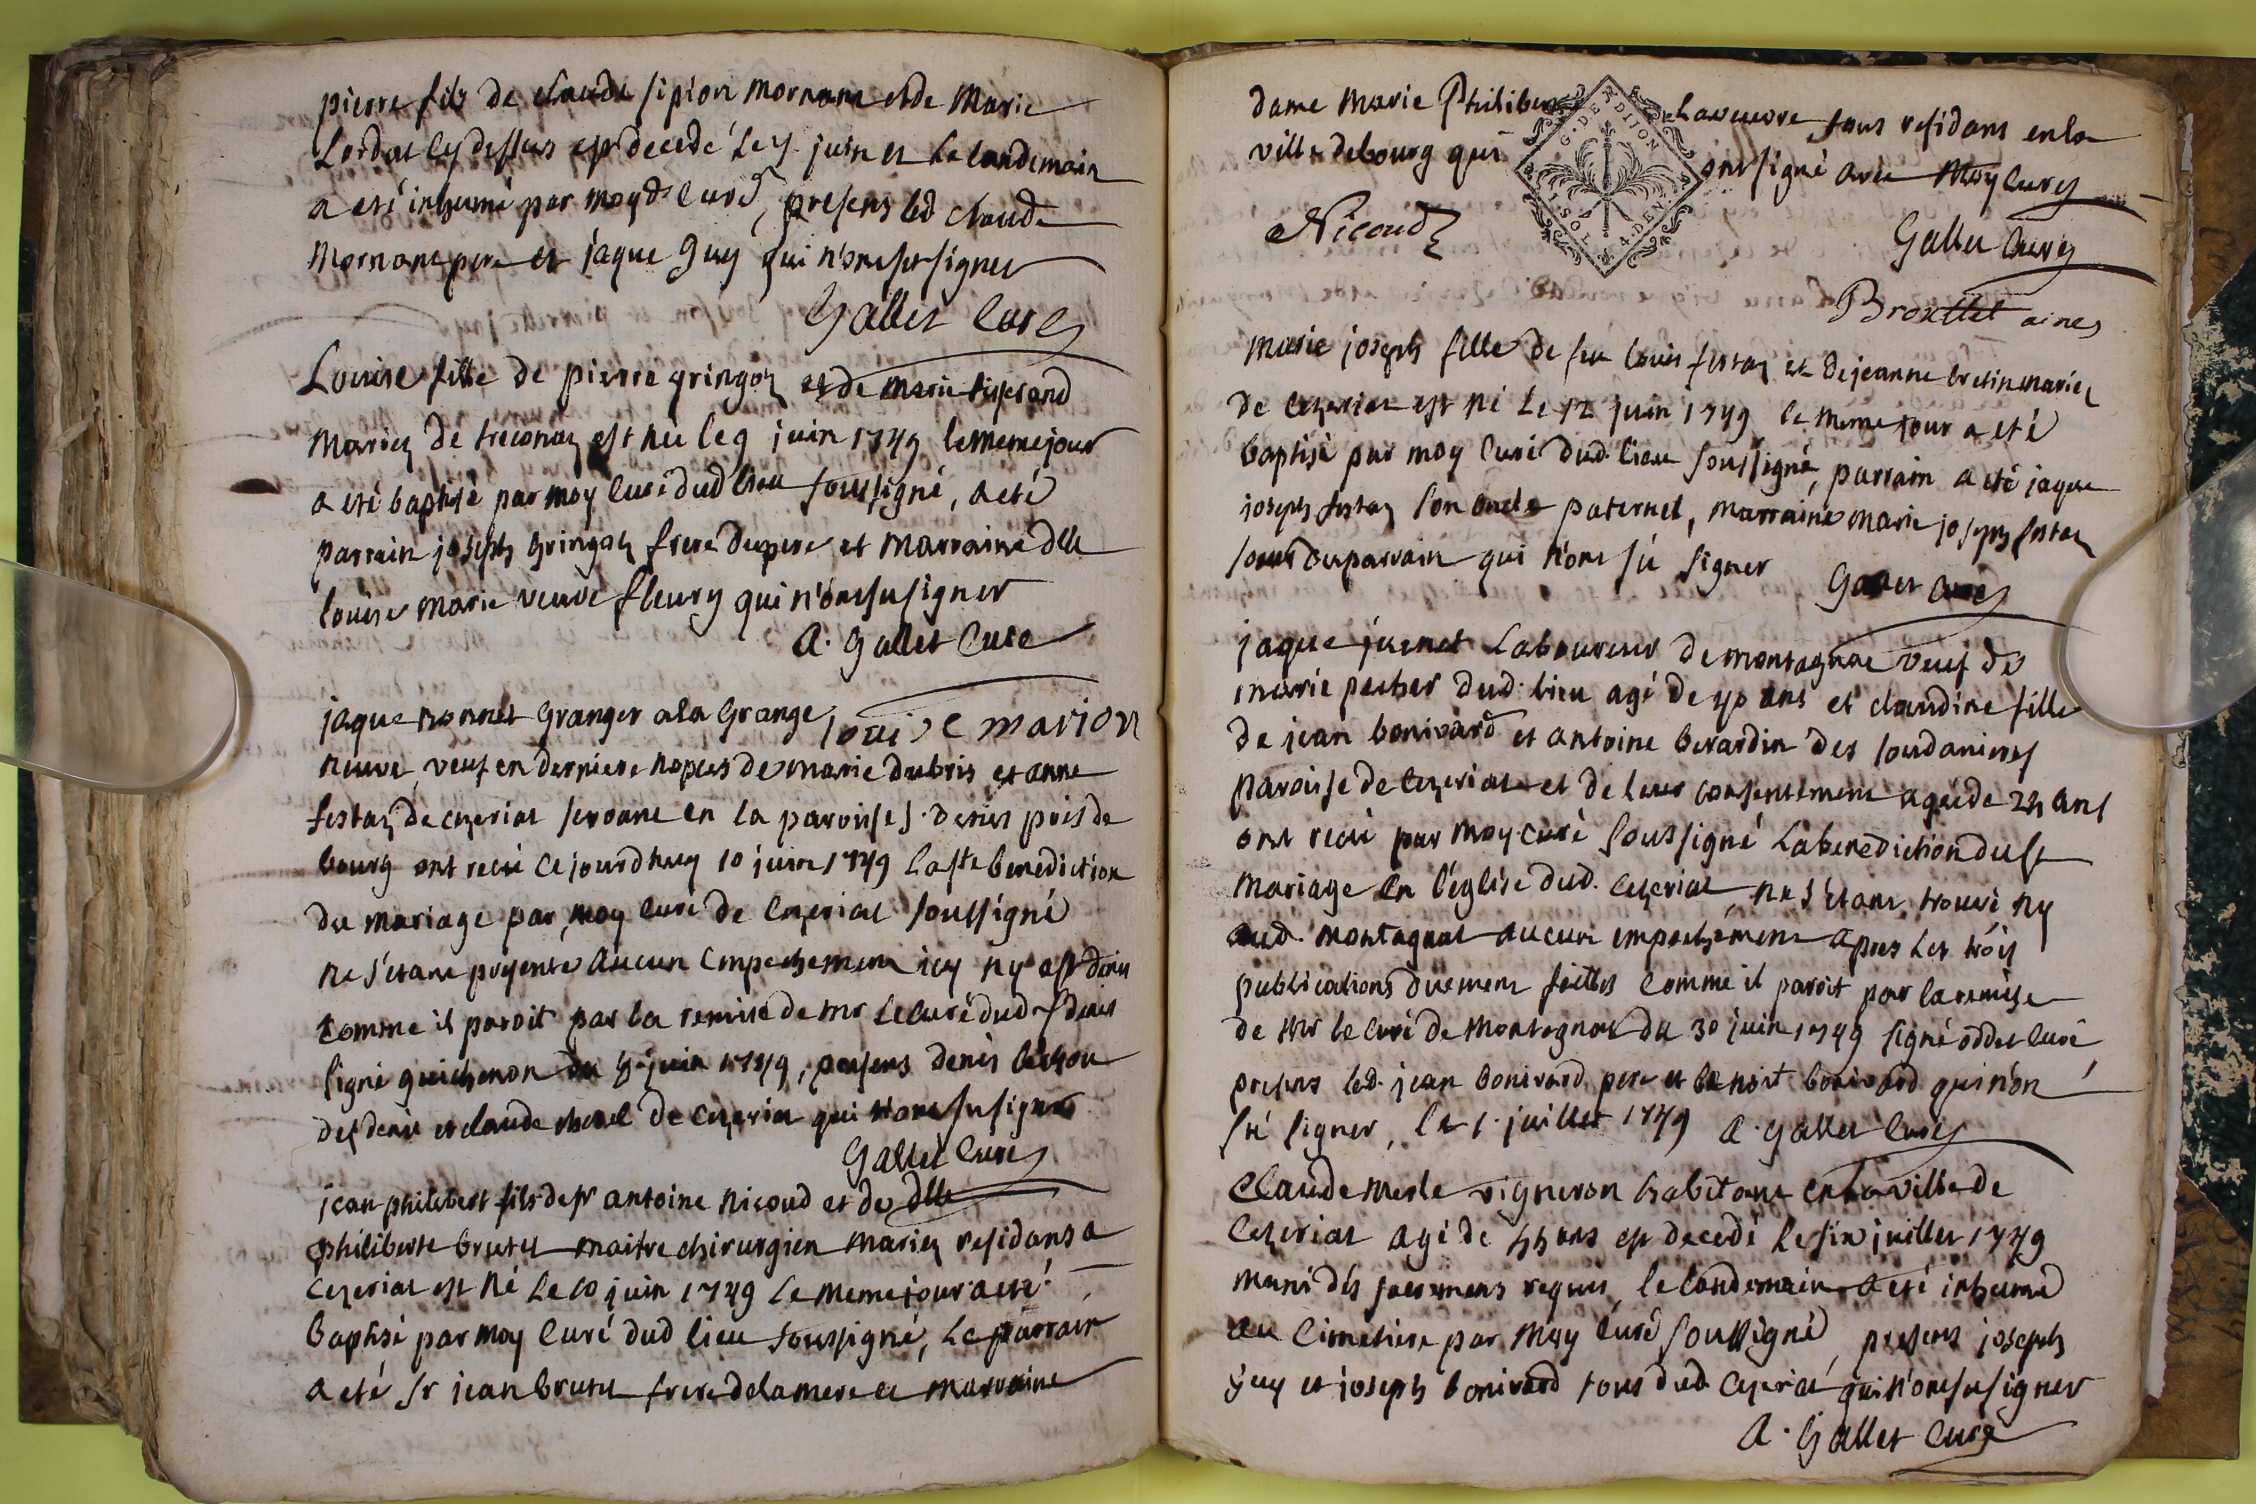 pierre fils de claude sipion mornant et de Marie
Lordat cy dessus est decedé le 7 juin et le landemain
a eté inhumé par moy d. curé, presens led claude
Mornant pere et jaque Guy qui n'ont su signer
Gallet Curé
Louise fille de pierre gringoz et de marie tisserand
Mariez de treconaz est née le 9 juin 1749 le meme jour
a eté baptisé par moy curé dud lieu soussigné, a eté
parrain joseph Gringoz frere du pere et Marraine dlle
louise marie veuve fleury qui n'ont su signer
A. Gallet Curé
louise marion
jaque nonnet Granger a la Grange
neuve, veuf en derniere nopces de marie dubris et anne
festaz de cezeriat servante en la paroisse S. Denis près de
bourg ont recu ce jourdhuy 10 juin 1749 la ste benediction
du mariage par moy curé de Cezeriat soussigné
ne s'etant presenté aucun empechement icy ny a st denis
comme il paroit par la remise de mr le curé dud st denis
signé guichenon du 8 juin 1749, presens denis
de st denis et claude morel de cezeriat qui n'ont su signer
Gallet Curé
jean philibert fils de sr antoine Nicoud et de dlle
philiberte brutet maitre chirurgien mariez residans a
Cezeriat est né le 10 juin 1749 le meme jour a eté
Baptisé par moy Curé dud lieu soussigné, le parrain
a eté sr jean brutet frere de la mere et marraine
dame Marie Philiberte Laveuvre tous residans en la
ville de bourg qui ont signé avec Moy Curé
G. DE N DIJON
1 SOL 4. DEN.
Nicoud
Gallet Curé
Brouttet ainez
Marie joseph fille de feu louis festaz et de jeanne bretin mariez
de Cezeriat est né le 12 juin 1749 le meme jour a eté
baptisé par moy Curé dud. lieu soussigné, parrain a eté jaque
joseph festaz son oncle paternel, marraine marie joseph festaz
soeur du parrain qui n'ont sû signer Gallet Curé
jaque juenet Laboureur de montagnat veuf de
marie pecher dud. lieu agé de 40 ans et claudine fille
de jean bonivard et antoine berardin des soudanieres
Paroisse de Cezeriat et de leur consentement agée de ans
ont recu par moy curé soussigné La benediction du st
Mariage en l'église dud. Cezeriat ne s'étant trouvé ny
aud. montagnat aucun empechement apres les trois
publications duement faittes comme il paroit par la remise
de Mr le Curé de Montagnat du 30 juin 1749 signé oddet Curé
presens led. jean bonivard pere et benoit bonivard qui n'on
sû signer, le 1. juillet 1749 A. Gallet Curé
Claude Merle vigneron habitant en la ville de
Cezeriat agé de ans est decedé le six juillet 1749
muni des sacremens requis, le landemain a eté inhumé
au Cimetiere par Moy Curé soussigné, presens joseph
guy et joseph bonivard tous dud Cezeriat qui n'ont su signer
A. Gallet Curé